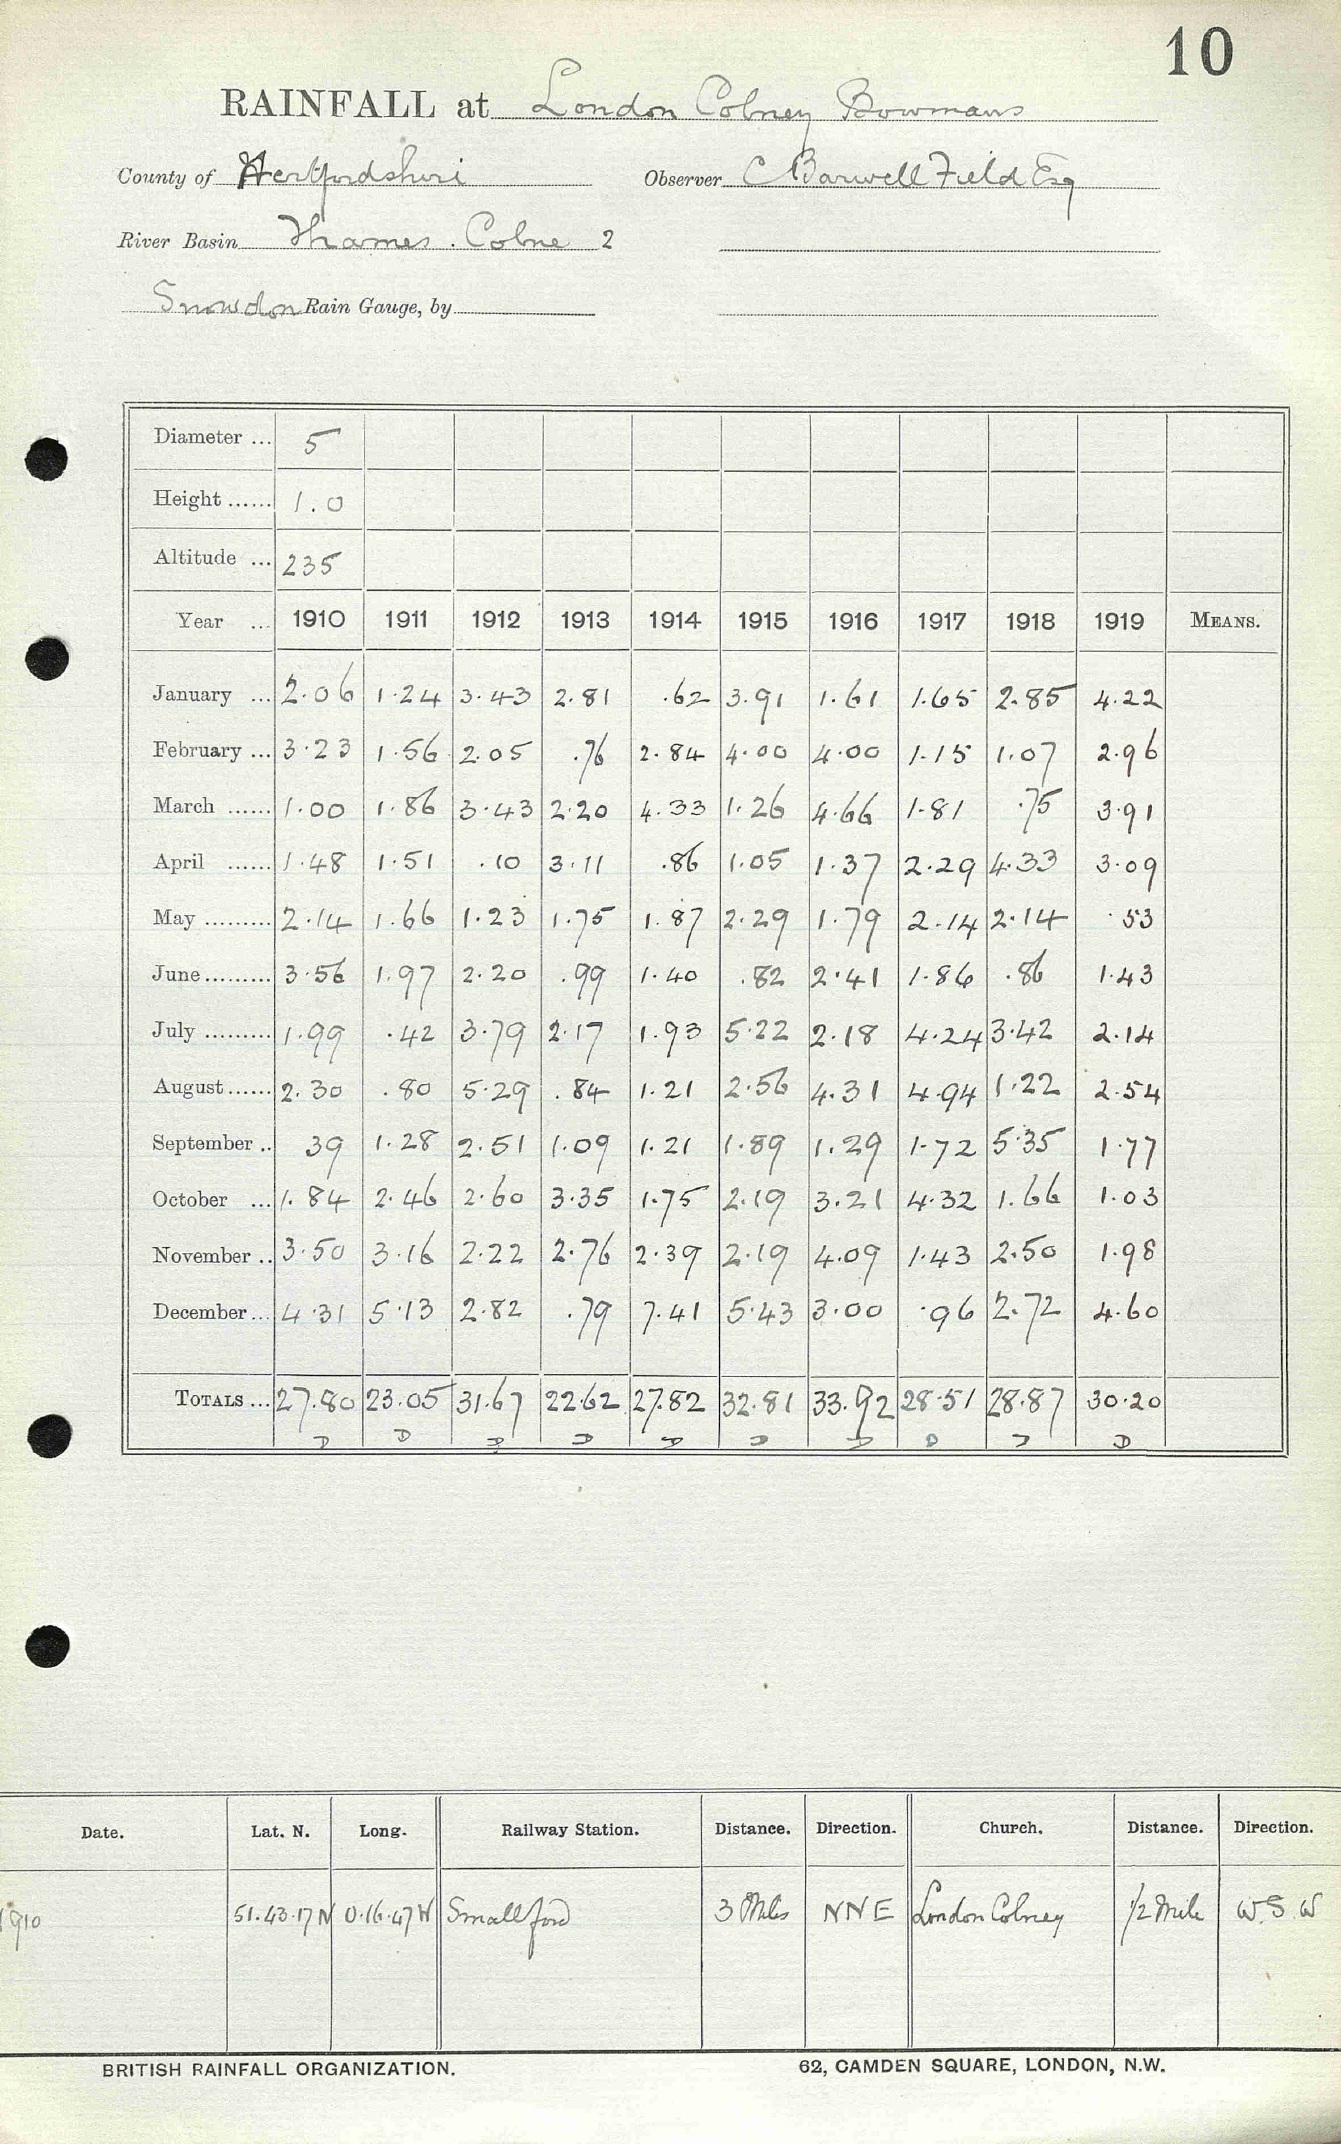 10
RAINFALL at London Colney Bowmans
County of Hertfordshire Observer C Barwell Field Esq
River Basin Thames . Colne 2
Snowdon Rain Gauge, by
Diameter ... 5
Height ...... 1.0
Altitude ... 235
Year ... 1910 1911 1912 1913 1914 1915 1916 1917 1918 1919 MEANS.
January ... 2.06 1.24 3.43 2.81 .62 3.91 1.61 1.65 2.85 4.22
February ... 3.23 1.56 2.05 .76 2.84 4.00 4.00 1.15 1.07 2.96
March ...... 1.00 1.86 3.43 2.20 4.33 1.26 4.66 1.81 .75 3.91
April ...... 1.48 1.51 .10 3.11 .86 1.05 1.37 2.29 4.33 3.09
May ......... 2.14 1.66 1.23 1.75 1.87 2.29 1.79 2.14 2.14 .53
June ......... 3.56 1.97 2.20 .99 1.40 .82 2.41 1.86 .86 1.43
July ......... 1.99 .42 3.79 2.17 1.93 5.22 2.18 4.24 3.42 2.14
August ...... 2.30 .80 5.29 .84 1.21 2.56 4.31 4.94 1.22 2.54
September .. 39 1.28 2.51 1.09 1.21 1.89 1.29 1.72 5.35 1.77
October ... 1.84 2.46 2.60 3.35 1.75 2.19 3.21 4.32 1.66 1.03
November .. 3.50 3.16 2.22 2.76 2.39 2.19 4.09 1.43 2.50 1.98
December ... 4.31 5.13 2.82 .79 7.41 5.43 3.00 .96 2.72 4.60
TOTALS ... 27.80 23.05 31.67 22.62 27.82 32.81 33.92 28.51 28.87 30.20
D D D D D D D D D D
Date. Lat. N. Long. Railway Station. Distance. Direction. Church. Distance. Direction.
1910 51.43.17 N 0.16.47 W Smallford 3 Miles NNE London Colney 1/2 Mile W.S.W
BRITISH RAINFALL ORGANIZATION. 62, CAMDEN SQUARE, LONDON, N.W.